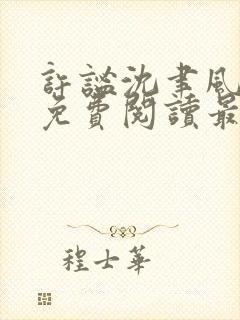 許謐沈聿風
免費閱讀最
程士華